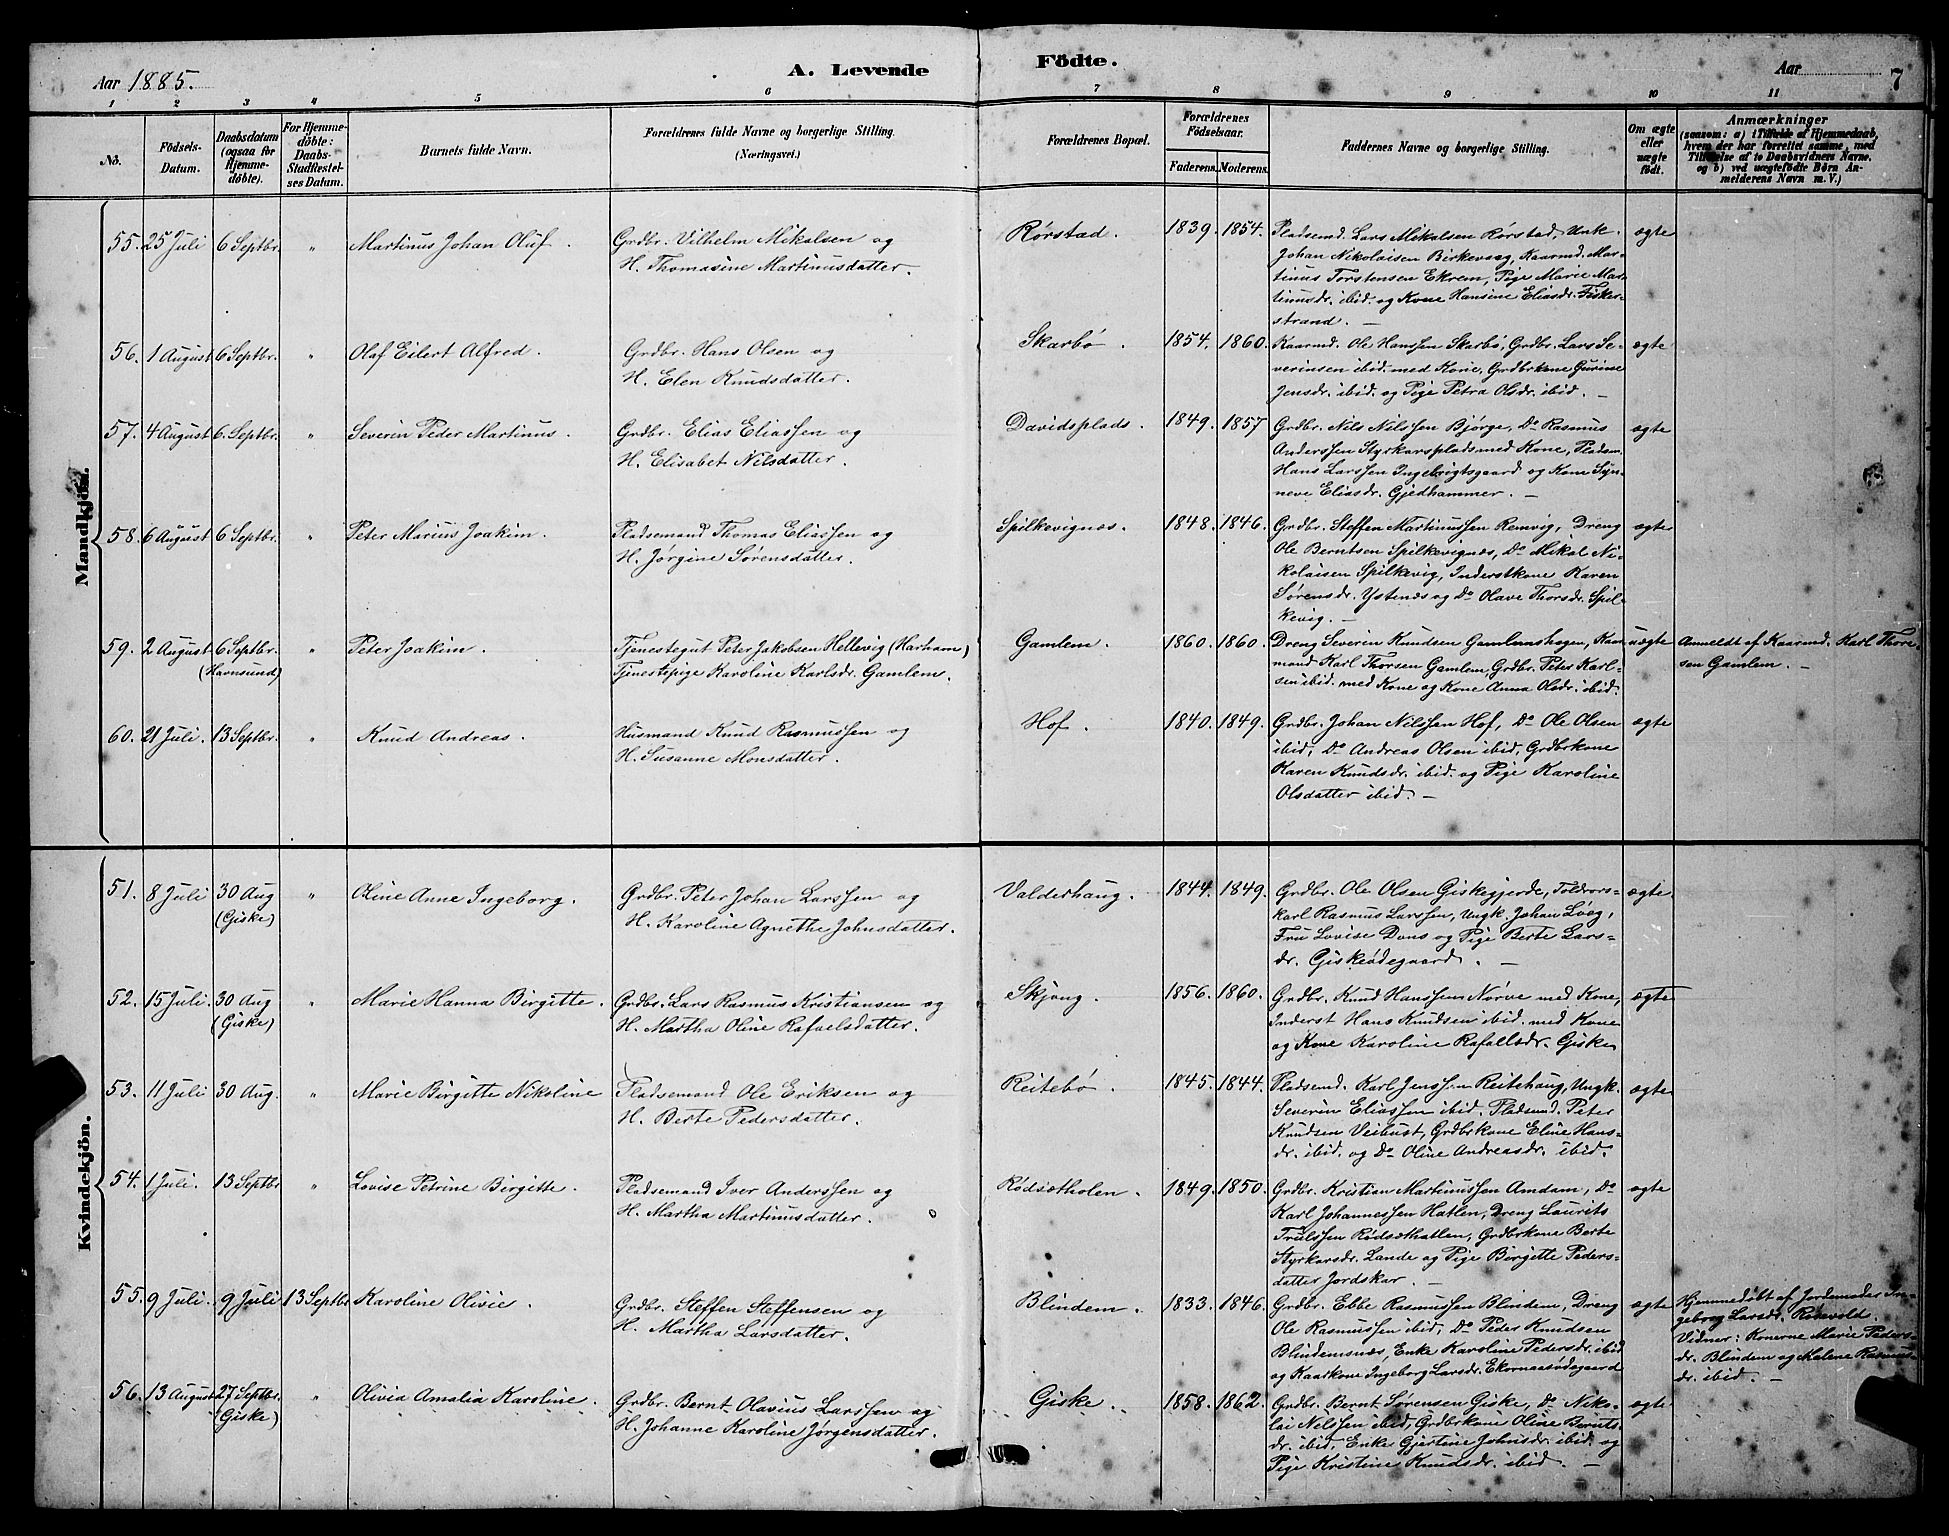 Aar 1885.
A. Levende
Födte.
Aar
7
1 2 3 4 5 6 7 8 9 10 11
Nö.
Födsels-
Datum.
Daabsdatum
(ogsaa for
Hjemme-
döbte).
For Hjemme-
döbte:
Daabs-
Stadfæstel-
ses Datum.
Barnets fulde Navn.
Forældrenes fulde Navne og borgerlige Stilling.
(Næringsvei.)
Forældrenes Bopæl.
Forældrenes
Födselsaar.
Faderens. Moderens.
Faddernes Navne og borgerlige Stilling.
Om ægte
eller
uægte
födt.
Anmærkninger
(saasom: a) i Tilfælde af Hjemmedaab,
hvem der har forrettet samme, med
Tilföielse af to Daabsvidners Navne,
og b) ved uægtefödte Börn An-
melderens Navn m. V.)
Mandkjön.
55. 25 Juli 6 Septbr. " Martinus Johan Oluf.
Grdbr. Vilhelm Mikalsen og
H. Thomasine Martinusdatter.
Rørstad. 1839. 1854.
Pladsemd. Lars Mikalsen Rørstad, Unk.
Johan Nikolaisen Birkevaag, Kaarmd. Mar-
tinus Torstensen Ekrem, Pige Marie Mar-
tinusdr. ibid. og Kone Hansine Eliasdr. Fisker-
strand. —
ægte
56. 1 August 6 Septbr. " Olaf Eilert Alfred.
Grdbr. Hans Olsen og
H. Elen Knudsdatter.
Skarbø. 1854. 1860.
Kaarmd. Ole Hanssen Skarbø, Grdbr. Lars Se-
verinsen ibid. med Kone, Grdbrkone Gurine
Jensdr. ibid. og Pige Petra Olsdr. ibid. —
ægte
57. 4 August 6. Septbr. " Severin Peder Martinus.
Grdbr. Elias Eliassen og
H. Elisabet Nilsdatter.
Davidsplads. 1849. 1857
Grdbr. Nils Nilssen Bjørge, Do Rasmus
Anderssen Styrkarsplads med Kone, Pladsm.
Hans Larssen Ingebrigtsgaard og Kone Syn-
neve Eliasdr. Gjedhammer. —
ægte
58. 6 August 6 Septbr. " Peter Marius Joakim.
Pladsemand Thomas Eliassen og
H. Jørgine Sørensdatter.
Spilkevignæs. 1848. 1846.
Grdbr. Steffen Martinussen Remvig, Dreng
Ole Berntsen Spilkevignæs, Do Mikal Ni-
kolaisen Spilkevig, Inderstkone Karen
Sørensdr. Ystenæs og Do Olave Thorsdr. Spil-
kevig. —
ægte
59. 2 August 6 Septbr. " Peter Joakim.
(Havnsund)
Tjenestegut Peter Jakobsen Hellevig (Harham)
Tjenestepige Karoline Karlsdr. Gamlem.
Gamlem. 1860. 1860.
Dreng Severin Knudsen Gamlemshagen, Kaar-
mand Karl Thorsen Gamlem, Grdbr. Peter Karl-
sen ibid. med Kone og Kone Anna Olsdr. ibid.
uægte
Anmeldt af Kaarmd. Karl Thore-
sen Gamlem. —
60. 21 Juli. 13 Septbr. " Knud Andreas.
Husmand Knud Rasmussen og
H. Susanne Monsdatter.
Hof. 1840. 1849.
Grdbr. Johan Nilssen Hof, Do Ole Olsen
ibid, Do Andreas Olsen ibid, Grdbrkone
Karen Knudsdr. ibid. og Pige Karoline
Olsdatter ibid. —
ægte
Kvindekjön.
51. 8 Juli 30 Aug " Oline Anne Ingeborg.
(Giske)
Grdbr. Peter Johan Larssen og
H. Karoline Agnethe Johnsdatter.
Valderhaug. 1844. 1849.
Grdbr. Ole Olsen Giskegjerde, Toldrors-
karl Rasmus Larssen, Ungk. Johan
Fru Lovise Dons og Pige Berte Lars-
dr. Giskeødegaard. —
ægte.
52. 15 Juli. 30 Aug " Marie Hanna Birgitte.
(Giske)
Grdbr. Lars Rasmus Kristiansen og
H. Martha Oline Rafaelsdatter.
Skjong. 1856. 1860.
Grdbr. Knud Hanssen Nørve med Kone,
Inderst Hans Knudsen ibid. med Kone
og Kone Karoline Rafaelsdr. Giske
ægte
53. 11 Juli 30 Aug. " Marie Birgitte Nikoline
Pladsemand Ole Eriksen og
H. Berte Pedersdatter.
Reitebø. 1845. 1844.
Pladsemd. Karl Jenssen Reitehaug, Ungk.
Severin Eliassen ibid. Pladsemd. Peter
Knudsen Veibust, Grdbrkone Eline Hans-
dr. ibid. og Do Oline Andreasdr. ibid.
ægte
54. 1 Juli. 13 Septbr " Lovise Petrine Birgitte.
Pladsemand Iver Anderssen og
H. Martha Martinusdatter.
Rødsætholen. 1849. 1850.
Grdbr. Kristian Martinussen Amdam, Do
Karl Johannessen Hatlen, Dreng Laurits
Trulssen Rødsæthatlen, Grdbrkone Berte
Styrkarsdr. Lande og Pige Birgitte Peders-
datter Jordskar. —
ægte
55. 9 Juli. 9 Juli 13 Septbr Karoline Olivie.
Grdbr. Steffen Steffensen og
H. Martha Larsdatter.
Blindem. 1833. 1846.
Grdbr. Ebbe Rasmussen Blindem, Dreng
Ole Rasmussen ibid, Do Peder Knudsen
Blindemsnæs, Enke Karoline Pedersdr. ibid
og Kaarkone Ingeborg Larsdr. Ekornæsødegaard
ægte
Hjemmedøbt af Jordemoder In-
geborg Larsdr. Rødsvold.
Vidner: Konerne Marie Peders-
dr. Blindem og Malene Rasmus-
dr. ibid. —
56. 13 August 27 Septbr. " Olivia Amalia Karoline.
(Giske)
Grdbr. Bernt Olavius Larssen og
H. Johanne Karoline Jørgensdatter.
Giske. 1858. 1862.
Grdbr. Bernt Sørensen Giske, Do Niko-
lai Nilssen ibid, Grdbrkone Oline Bernts-
dr. ibid, Enke Gjertine Johnsdr. ibid. og
Pige Kristine Knudsdr. ibid. —
ægte